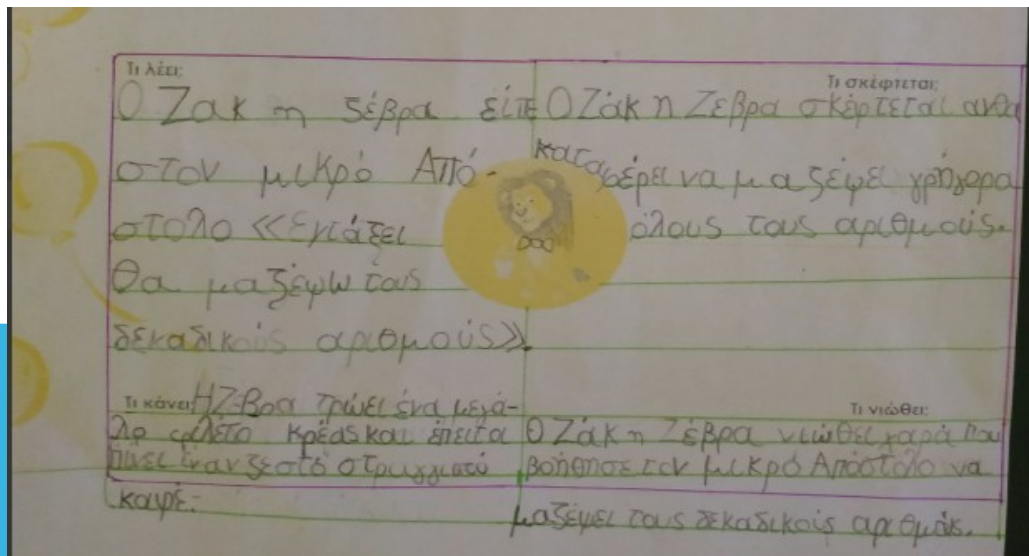 Τι λέει:
Ο Ζακ η ζέβρα είπε
στον μικρό Από-
στολο «Εντάξει
θα μαζέψω τους
δεκαδικούς αριθμούς».
Τι σκέφτεται:
Ο Ζάκ η Ζέβρα σκέφτεται αν θα
καταφέρει να μαζέψει γρήγορα
όλους τους αριθμούς.
Τι κάνει: Η Ζέβρα τρώει ένα μεγά-
λο φιλέτο κρέας και έπειτα
πίνει έναν ζεστό
καφέ.
Τι νιώθει:
Ο Ζάκ η Ζέβρα νιώθει χαρά που
βοήθησε τον μικρό Απόστολο να
μαζέψει τους δεκαδικούς αριθμούς.